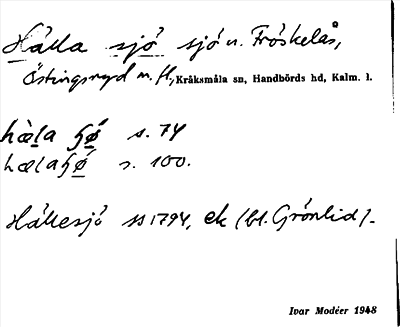 Hälla sjö sjö n. Fröskelås,
Östingsryd m. fl., Kråksmåla sn, Handbörds hd, Kalm. l.
hæ̀la ɧǿ s. 74
hælaɧǿ s. 100.
Hällesjö ss 1794, ek (bl. Grönlid).
Ivar Modéer 1948